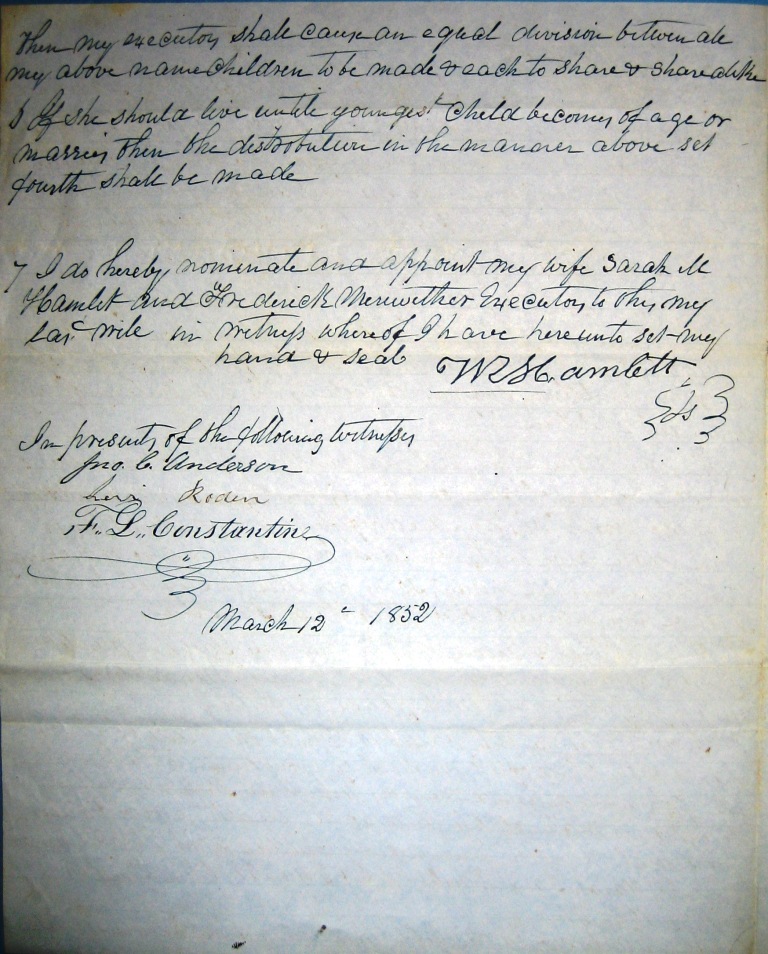 then my executors shall cause an equal division between all
my above name children to be made & each to share & share alike
6 If she should live until youngest child becomes of age or
marries then the distrobution in the manner above set
fourth shall be made
7 I do hereby nominate and appoint my wife Sarah M
Hamlet and Frederick Meriwether Executors to this my
last will in witness whereof I have hereunto set my
hand & seal W R Hamlett
Ls
In presents of the following witness
Jno. C. Anderson
Levi Roden
F. L. Constantine
March 12 1852